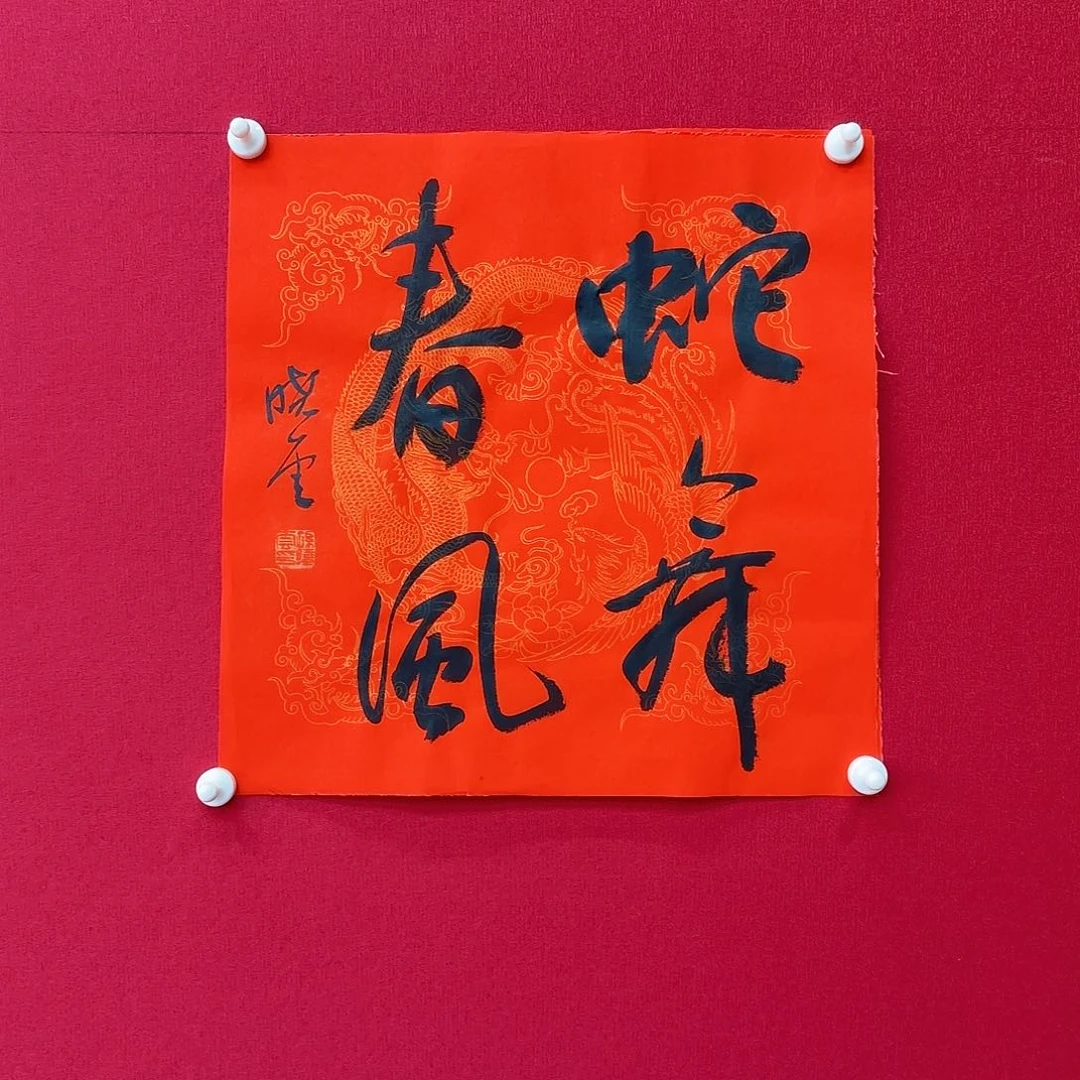 蛇舞
春風
晓雲